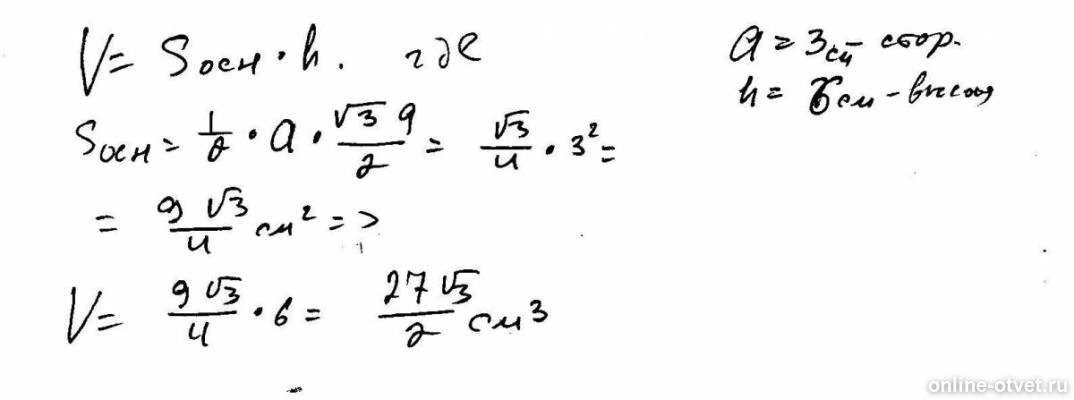 V = Sосн · h. где
a = 3см - стор.
h = 6см - высота
Sосн = 1/2 · a · √3 a/2 = √3/4 · 3² =
= 9√3/4 см² =>
V = 9√3/4 · 6 = 27√3/2 см³
online-otvet.ru